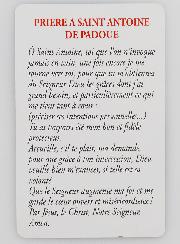 PRIERE A SAINT ANTOINE
DE PADOUE
O Saint Antoine, toi que l'on n'invoque
jamais en vain, une fois encore je me
tourne vers toi, pour que tu m'obtiennes
du Seigneur Dieu les grâces dont j'ai
grand besoin, et particulièrement ce qui
me tient tant à cœur :
(préciser ses intentions personnelles...)
Tu as toujours été mon bon et fidèle
protecteur.
Accueille, s'il te plaît, ma demande,
pour que grâce à ton intercession, Dieu
veuille bien m'exaucer, si telle est sa
volonté.
Que le Seigneur augmente ma foi et me
garde le cœur ouvert et miséricordieux !
Par Jésus, le Christ, Notre Seigneur
Amen.